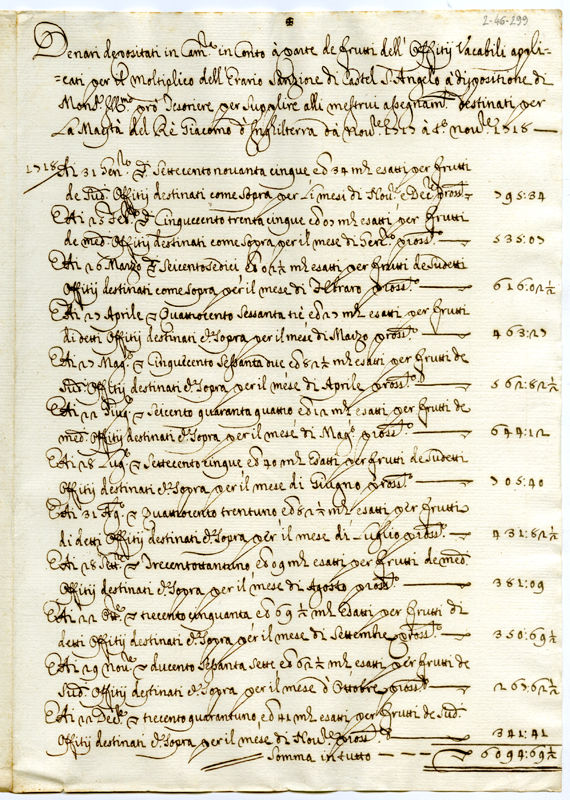 2-46-299
Denari depositati in Cam.ra in Conto à parte de frutti dell' Offitij Vacabili appli-
=cati per il moltiplico dell'Erario Sanzione di Castel S. Angelo à dispositione di
Mons.r Ill.mo prò Tesoriere per supplire alli mestrui assegnam.ti destinati per
La Maestà del Rè Giacomo d'Inghilterra dà Nov.re 1717 à t.o nov.re 1718 —
1718 Adi 31 Gen.ro ∇ Settecento novanta cinque ed 34 m.ta esatti per frutti
de Sud.i Offitij destinati come sopra per li mesi di Nov.re e Dec.re pross.i — 795:34
E Adi 25 Feb.o ∇ Cinquecento trenta cinque ed 07 m.ta esatti per frutti
de med.i Offitij destinati come sopra per il mese di Gen.ro pross.o — 535:07
E Adi 26 Marzo ∇ Seicentosedici ed 02½ m.ta esatti per frutti de Sudetti
Offitij destinati come sopra per il mese di Febraro pross.o — 616:02½
E Adi 27 Aprile ∇ Quattrocento Sessanta tre ed 27 m.ta esatti per frutti
di detti Offitij destinati c.e Sopra per il mese di Marzo pross.o — 463:27
E Adi 27 Mag.o ∇ Cinquecento Sessanta due ed 82½ m.ta esatti per frutti de
Sud.i Offitij destinati c.e Sopra per il mese di Aprile pross.o — 562:82½
E Adi 22 Giug.o ∇ Seicento quaranta quatro ed 12 m.ta esatti per frutti de
med.i Offitij destinati c.e Sopra per il mese di Mag.o pross.o — 644:12
E Adi 28 Lug.o ∇ Settecento cinque ed 40 m.ta Esatti per frutti de Sudetti
Offitij destinati c.e Sopra per il mese di Giugno pross.o — 705:40
E Adi 31 Ag.o ∇ Quattrocento trentuno ed 82½ m.ta esatti per frutti
di detti Offitij destinati c.e Sopra per il mese di Luglio pross.o — 431:82½
E Adi 28 Sett.e ∇ Trecentottantuno ed 09 m.ta esatti per frutti de med.i
Offitij destinati c.e Sopra per il mese di Agosto pross.o — 381:09
E Adi 22 Ott.e ∇ trecento cinquanta ed 69½ m.ta Esatti per frutti di
detti Offitij destinati c.e Sopra per il mese di Settembre pross.o — 350:69½
E Adi 29 Nov.re ∇ ducento Sessanta Sette ed 62½ m.ta esatti per frutti de
Sud.i Offitij destinati c.e Sopra per il mese d'Ottobre pross.o — 267:62½
E Adi 22 Dec.re ∇ trecento quarantuno, ed 41 m.ta esatti per frutti de Sud.i
Offitij destinati c.e Sopra per il mese di Nov.re pross.o — 341:41
Somma in tutto — — — ∇ 6094:69½